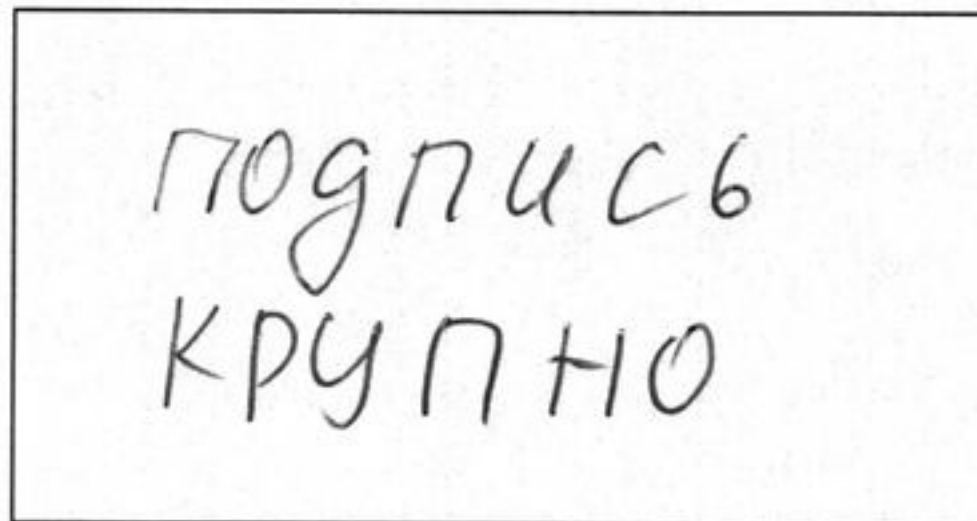 подпись
крупно